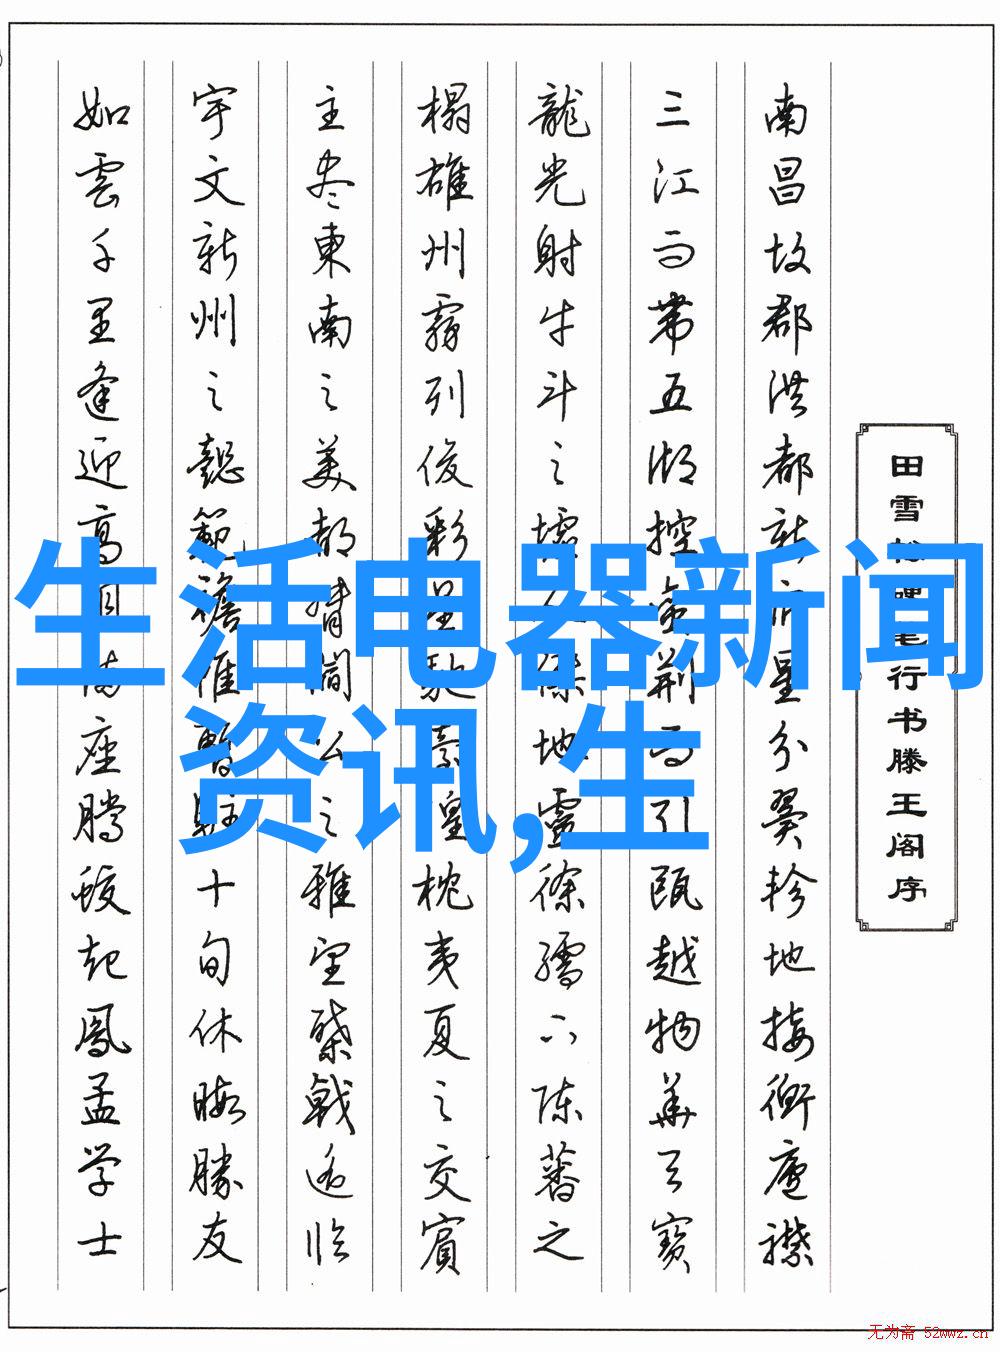 生活电器新闻
资讯,生
田雪
行书滕王阁序
南昌故郡洪都新府星分翼轸地接衡廬襟
三江而带五湖控蛮荆而引瓯越物華天寳
龍光射牛斗之墟傑地靈徐孺下陈蕃之
榻雄州霧列俊彩星驰臺隍枕夷夏之交賓
主尽東南之美都督閻公之雅望棨戟遥临
宇文新州之懿範襜帷暫駐十旬休暇勝友
如雲千里逢迎高朋满座腾蛟起鳳孟学士
无为斋 52wwz.cn